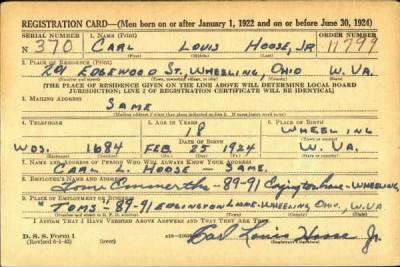 REGISTRATION CARD—(Men born on or after January 1, 1922 and on or before June 30, 1924)
SERIAL NUMBER 1. NAME (Print) ORDER NUMBER
N 370 CARL LOUIS HOOSE, JR 11799
(First) (Middle) (Last)
2. PLACE OF RESIDENCE (Print)
291 EDGEWOOD ST. WHEELING, OHIO W. VA.
(THE PLACE OF RESIDENCE GIVEN ON THE LINE ABOVE WILL DETERMINE LOCAL BOARD
JURISDICTION; LINE 2 OF REGISTRATION CERTIFICATE WILL BE IDENTICAL)
3. MAILING ADDRESS
SAME
[Mailing address if other than place indicated on line 2. If same insert word same]
4. TELEPHONE 5. AGE IN YEARS 6. PLACE OF BIRTH
18 WHEELING
DATE OF BIRTH
WDS. 1684 FEB 25 1924 W. VA.
(Exchange) (Number) (Mo.) (Day) (Yr.) (State or country)
7. NAME AND ADDRESS OF PERSON WHO WILL ALWAYS KNOW YOUR ADDRESS
CARL L. HOOSE — SAME.
8. EMPLOYER'S NAME AND ADDRESS
89-91 WHEELING
9. PLACE OF EMPLOYMENT OR BUSINESS
TOMS - 89-91 EDGINGTON LANE-WHEELING, OHIO, W. VA
I AFFIRM THAT I HAVE VERIFIED ABOVE ANSWERS AND THAT THEY ARE TRUE.
D. S. S. Form 1
(Revised 6-1-42)
Carl Louis Hoose Jr.
(Registrant's signature)